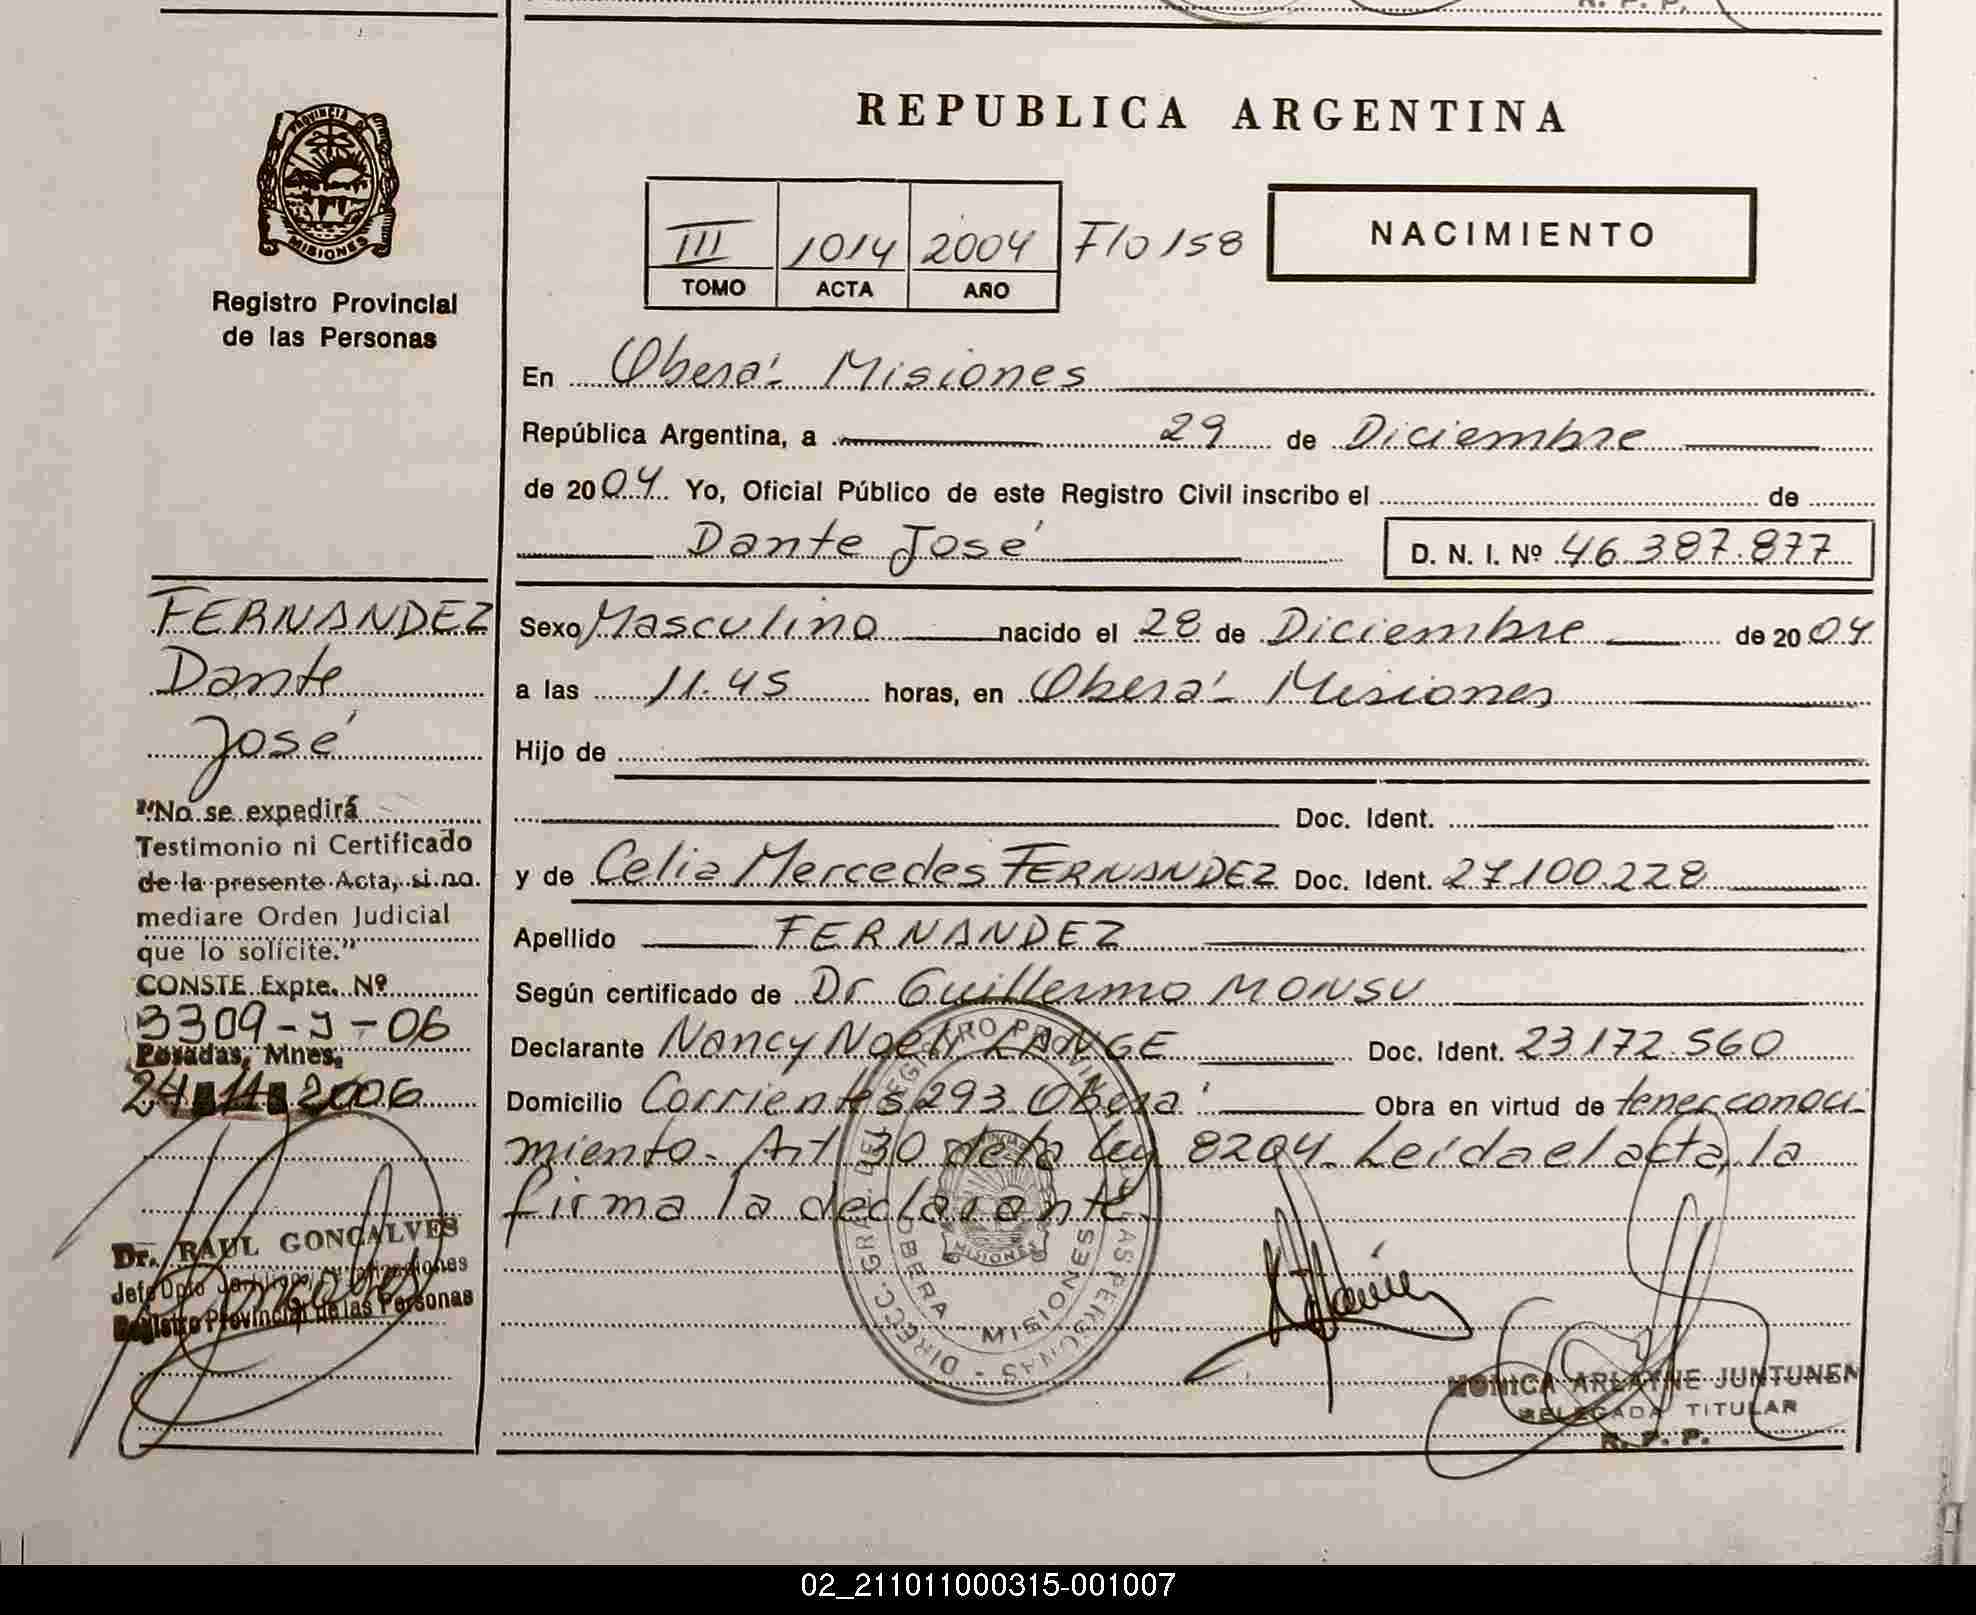 R. P. P.
PROVINCIA DE
MISIONES
Registro Provincial
de las Personas
REPUBLICA ARGENTINA
III 1014 2004 Flo 158
TOMO ACTA AÑO
NACIMIENTO
En Oberá - Misiones
República Argentina, a 29 de Diciembre
de 2004 Yo, Oficial Público de este Registro Civil inscribo el de
Dante José D. N. I. Nº 46.387.877
Sexo Masculino nacido el 28 de Diciembre de 2004
a las 11.45 horas, en Oberá - Misiones
Hijo de
Doc. Ident.
y de Celia Mercedes FERNANDEZ Doc. Ident. 27.100.228
Apellido FERNANDEZ
Según certificado de Dr Guillermo MONSU
Declarante Nancy Noemi LANGE Doc. Ident. 23.172.560
Domicilio Corrientes 293 Oberá Obra en virtud de tener conoci-
miento - Art 30 de la ley 8204 - Leída el acta, la
firma la declarante.
FERNANDEZ
Dante
José
"No se expedirá
Testimonio ni Certificado
de la presente Acta, si no
mediare Orden Judicial
que lo solicite."
CONSTE Expte. Nº
3309 - J - 06
Posadas, Mnes,
24 11 2006
Dr. RAUL GONCALVES
Jefe Dpto
Registro Provincial de las Personas
DIRECC. GRAL. DEL REGISTRO PROVINCIAL DE LAS PERSONAS
OBERA - MISIONES
MISIONES
MONICA ARLAYNE JUNTUNEN
DELEGADA TITULAR
R. P. P.
02_211011000315-001007